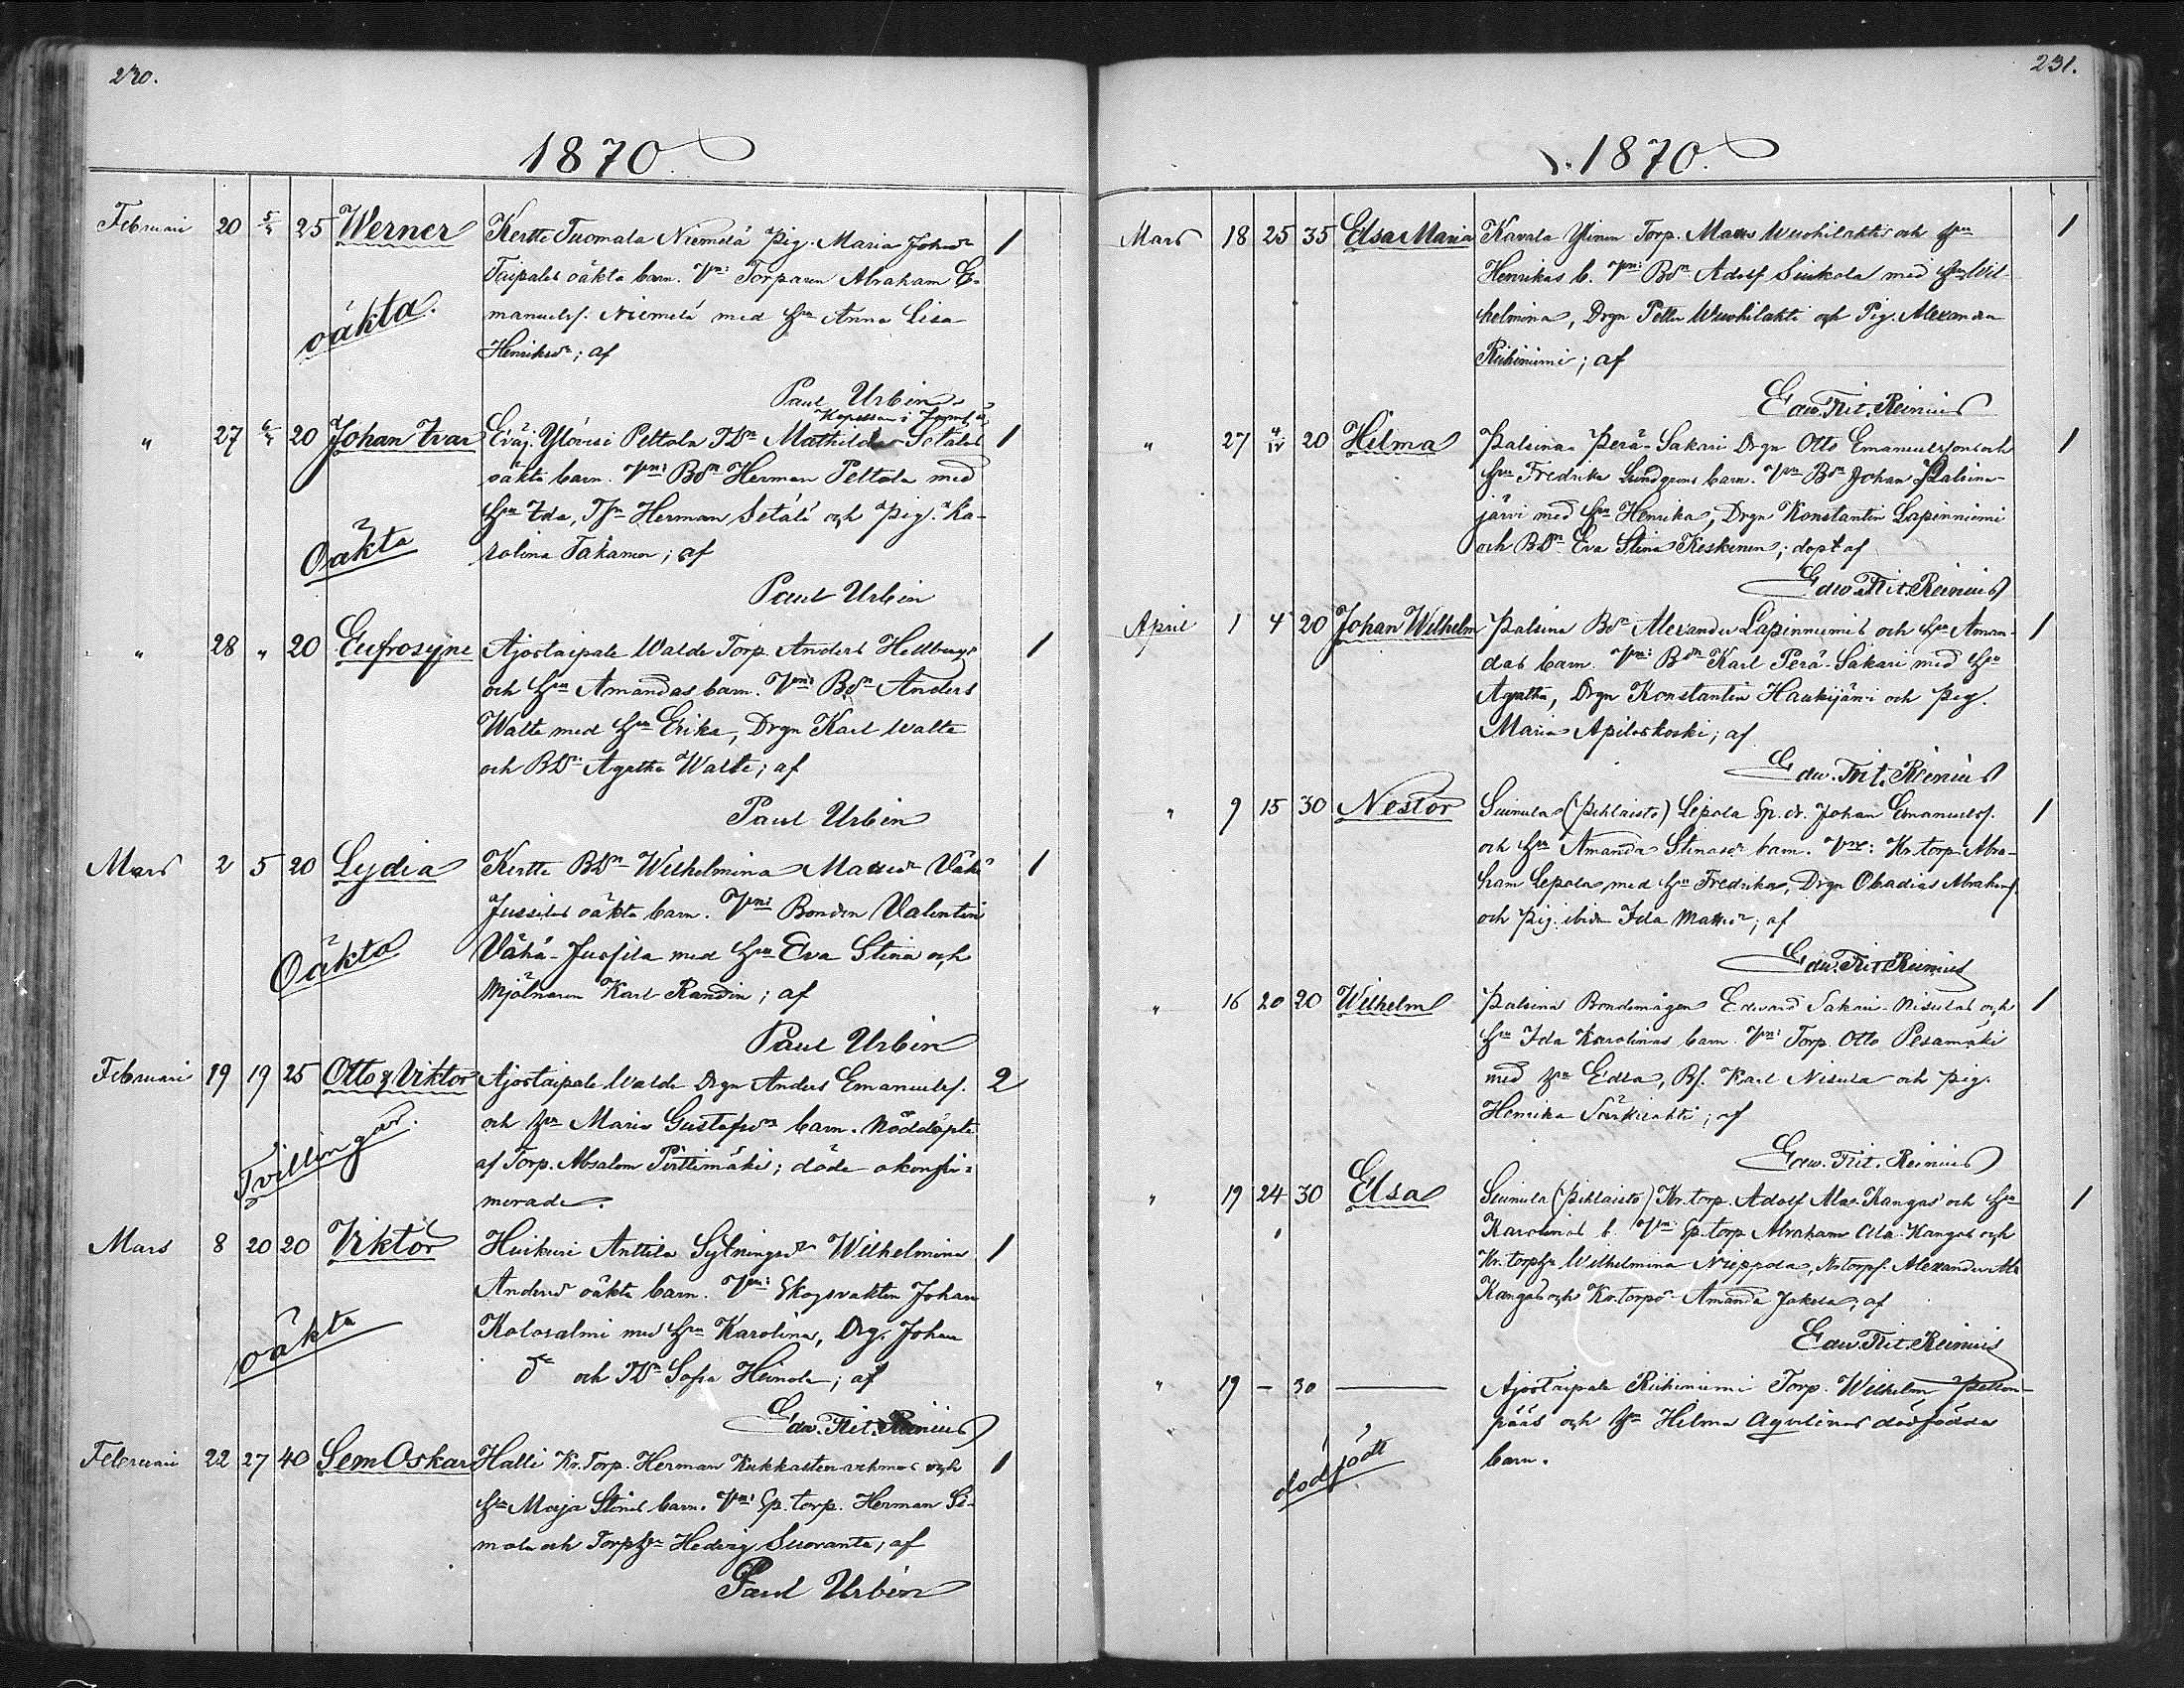 230.
1870
Februari 20 5/3 25 Werner Kertte Tuomala Niemelä Pig. Maria Johsdr 1
Taipales oäkta barn. Vn: Torparen Abraham E-
oäkta. manuelsf. Niemelä med Hu Anna Lisa
Henriksdr; af
Paul Urbin
" 27 6/3 20 Johan Ivar Peltola TDr Mathilda Setäläs 1
oäkta barn. Vn: Bdn Herman Peltola med
Hu Ida, Herman Setälä och Pig. Ka-
Oäkta rolina Takanen; af
Paul Urbin
" 28 " 20 Eufrosyne Ajostaipale Walde Torp. Anders Hellbergs 1
och Hu Amandas barn. Vn: Bdn Anders
Walta med Hu Erika, Drgn Karl Walta
och BDr Agatha Walte; af
Paul Urbin
Mars 2 5 20 Lydia Kertte BDr Wilhelmina Mattsdr Vähä 1
Jussilas oäkta barn. Vn: Bonden Valentin
Oäkta Vähä-Jussila med Hu Eva Stina och
Mjölnaren Karl Randin; af
Paul Urbin
Februari 19 19 25 Otto & Viktor Ajostaipale Walde Drgn Anders Emanuelsf. 2
och Hu Maria Gustafsdr barn. Nöddöpte
Tvillingar. af Torp. Absalon Pirttimäki; döde okonfir-
merade.
Mars 8 20 20 Viktor Huikuri Anttila Sytningsdr Wilhelmina 1
Andersdr oäkta barn. Vn: Skogsvakten Johan
oäkta Kolosalmi med Hu Karolina, Drg. Johan
do och TDr Sofia Heinola; af
Edw. Frit. Reinius
Februari 22 27 40 Sem Oskar Halli Kr. Torp. Herman och 1
Hu Maja Stinas barn. Vn: Sp. torp. Herman Si-
mola och Torphu Hedvig Suoranta; af
Paul Urbin
231.
1870.
Mars 18 25 35 Elsa Maria Kavala Ylinen Torp. Matts Wuohilahtis och Hu 1
Henrikas b. Vn: Bdn Adolf Siukola med Hu Wil-
helmina, Drgn Petter Wuohilahti och Pig. Alexandra
Riihiniemi; af
Edw. Frit. Reinius
" 27 4/IV 20 Hilma Palsina Perä-Sakari Drgn Otto Emanuelssons och 1
Hu Fredrika Lundgrens barn. Vn Bdn Johan Palsina-
järvi med Hu Henrika, Drgn Konstantin Lapinniemi
och BDr Eva Stina Keskinen; döpt af
Edw. Frit. Reinius
April 1 4 20 Johan Wilhelm Palsina Bdn Alexander Lapinniemis och Hu Aman- 1
das barn. Vn: Bdn Karl Perä-Sakari med Hu
Agatha, Drgn Konstantin Haukijärvi och Pig.
Maria Apiloskoski; af
Edw. Frit. Reinius
" 9 15 30 Nestor Suinula (Pihlaisto) Lepola Sp. Johan Emanuelsf. 1
och Hu Amanda Stinas barn. Vn: Kr. torp. Abra-
ham Lepola med Hu Fredrika, Drgn Obadias Abrahamsf.
och Pig. ibidem Ida Mattsdr; af
Edw. Frit. Reinius
" 16 20 20 Wilhelm Palsina Bondemågen Edward Sakari-Nisulas och 1
Hu Ida Karolinas barn. Vn: Torp. Otto Pesämäki
med Hu Edla, Bs. Karl Nisula och Pig.
Henrika Särkilahti; af
Edw. Frit. Reinius
" 19 24 30 Elsa Suinula (Pihlaisto) Kr. torp. Adolf Ala-Kangas och Hu 1
Karolinas b. Vn: Sp. torp Abraham Ala-Kangas och
Kr. torphu Wilhelmina Nieppola, Kr. torps. Alexander Ala
Kangas och Kr. torpdr Amanda Jakola; af
Edw. Frit. Reinius
" 19 — 30 —— Ajostaipale Riihiniemi Torp. Wilhelm Pellon-
pääs och Hu Hilma Aqvilinas dödfödda
dödfödt barn.